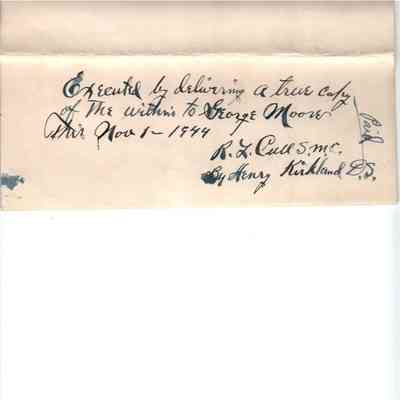 Executed by delivering a true copy
of The within to George Moore
this Nov 1 - 1944
R. L. Cull S.M.C.
By Henry Kirkland D.S.
Paid